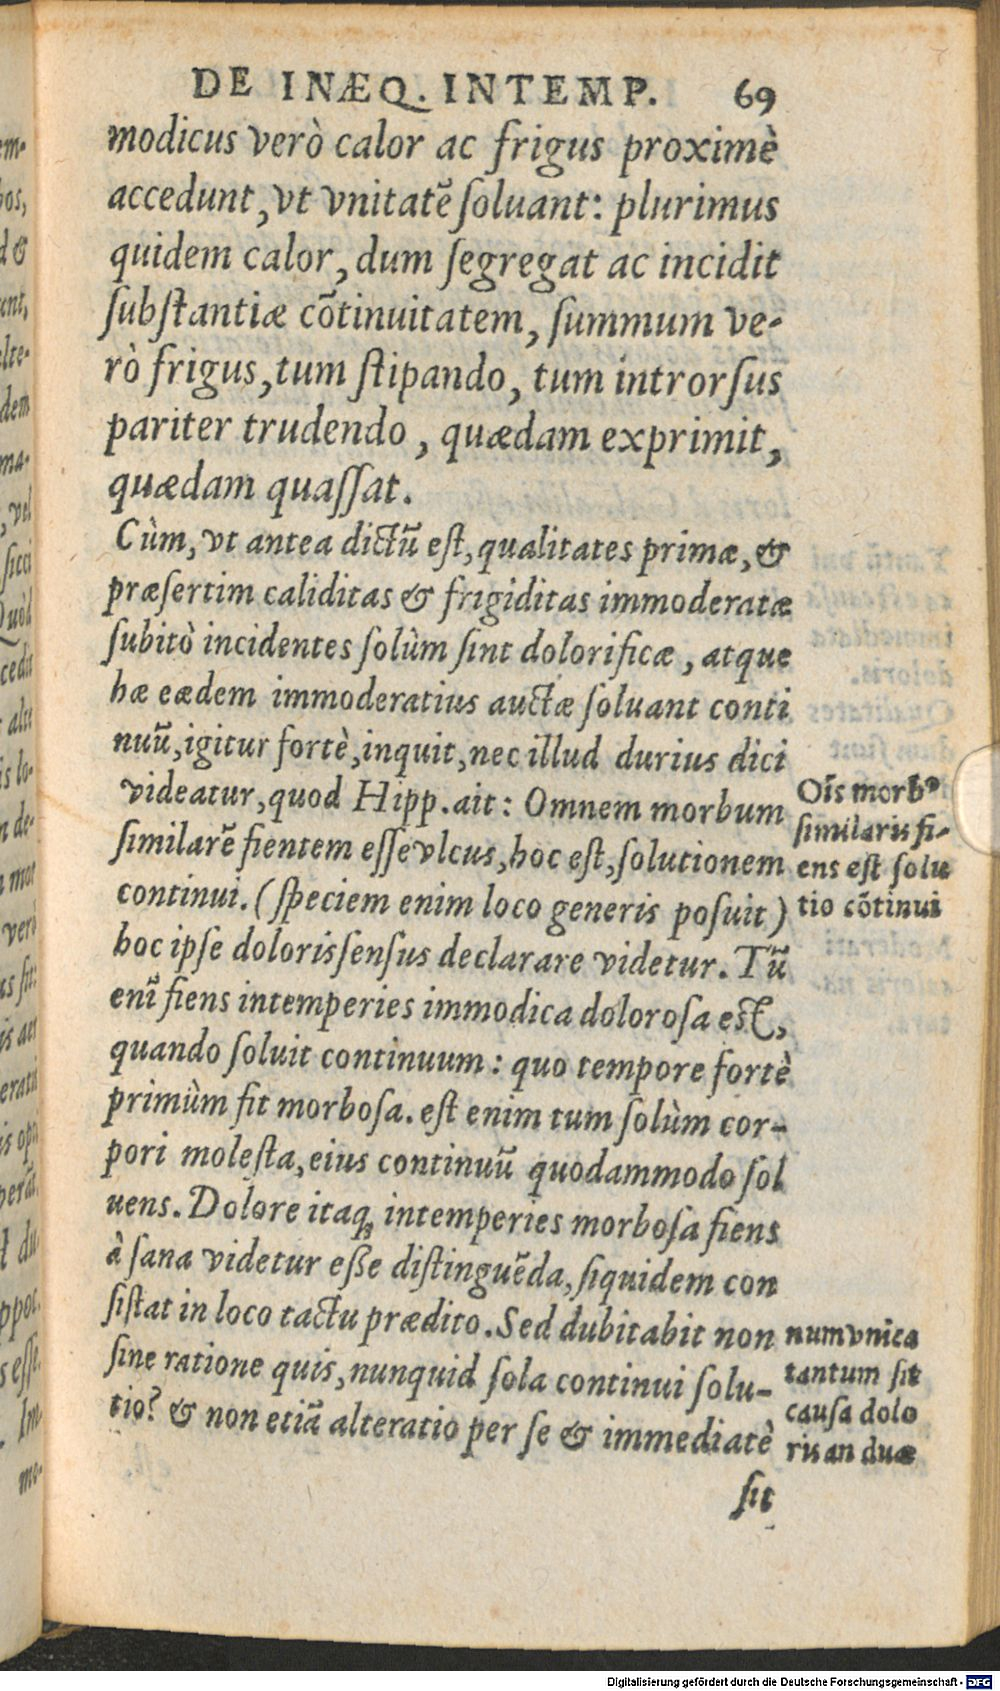 DE INÆQ. INTEMP. 69
modicus verò calor ac frigus proximè
accedunt, vt vnitatẽ soluant: plurimus
quidem calor, dum segregat ac incidit
substantiæ cõtinuitatem, summum ve-
rò frigus, tum stipando, tum introrsus
pariter trudendo, quædam exprimit,
quædam quassat.
Cùm, vt antea dictũ est, qualitates primæ, &
præsertim caliditas & frigiditas immoderatæ
subitò incidentes solùm sint dolorificæ, atque
hæ eædem immoderatius auctæ soluant conti
nuũ, igitur fortè, inquit, nec illud durius dici
videatur, quod Hipp. ait: Omnem morbum
similarẽ fientem esse vlcus, hoc est, solutionem
continui. (speciem enim loco generis posuit)
hoc ipse doloris sensus declarare videtur. Tũ
enĩ fiens intemperies immodica dolorosa est,
quando soluit continuum: quo tempore fortè
primùm fit morbosa. est enim tum solùm cor-
pori molesta, eius continuũ quodammodo sol
uens. Dolore itaq; intemperies morbosa fiens
à sana videtur esse distinguẽda, siquidem con
sistat in loco tactu prædito. Sed dubitabit non
sine ratione quis, nunquid sola continui solu-
tio? & non etiã alteratio per se & immediatè
sit
Oĩs morbꝰ
similaris fi-
ens est solu
tio cõtinui
num vnica
tantum sit
causa dolo
ris an duæ
em-
bos,
d &
unt,
elte-
dem
ma-
, vel
sicci
Quòd
cedit
alit
is lo-
n de-
mor
verò
us sit:
is aer
d du
s esse.
Im-
mo-
Digitalisierung gefördert durch die Deutsche Forschungsgemeinschaft - DFG